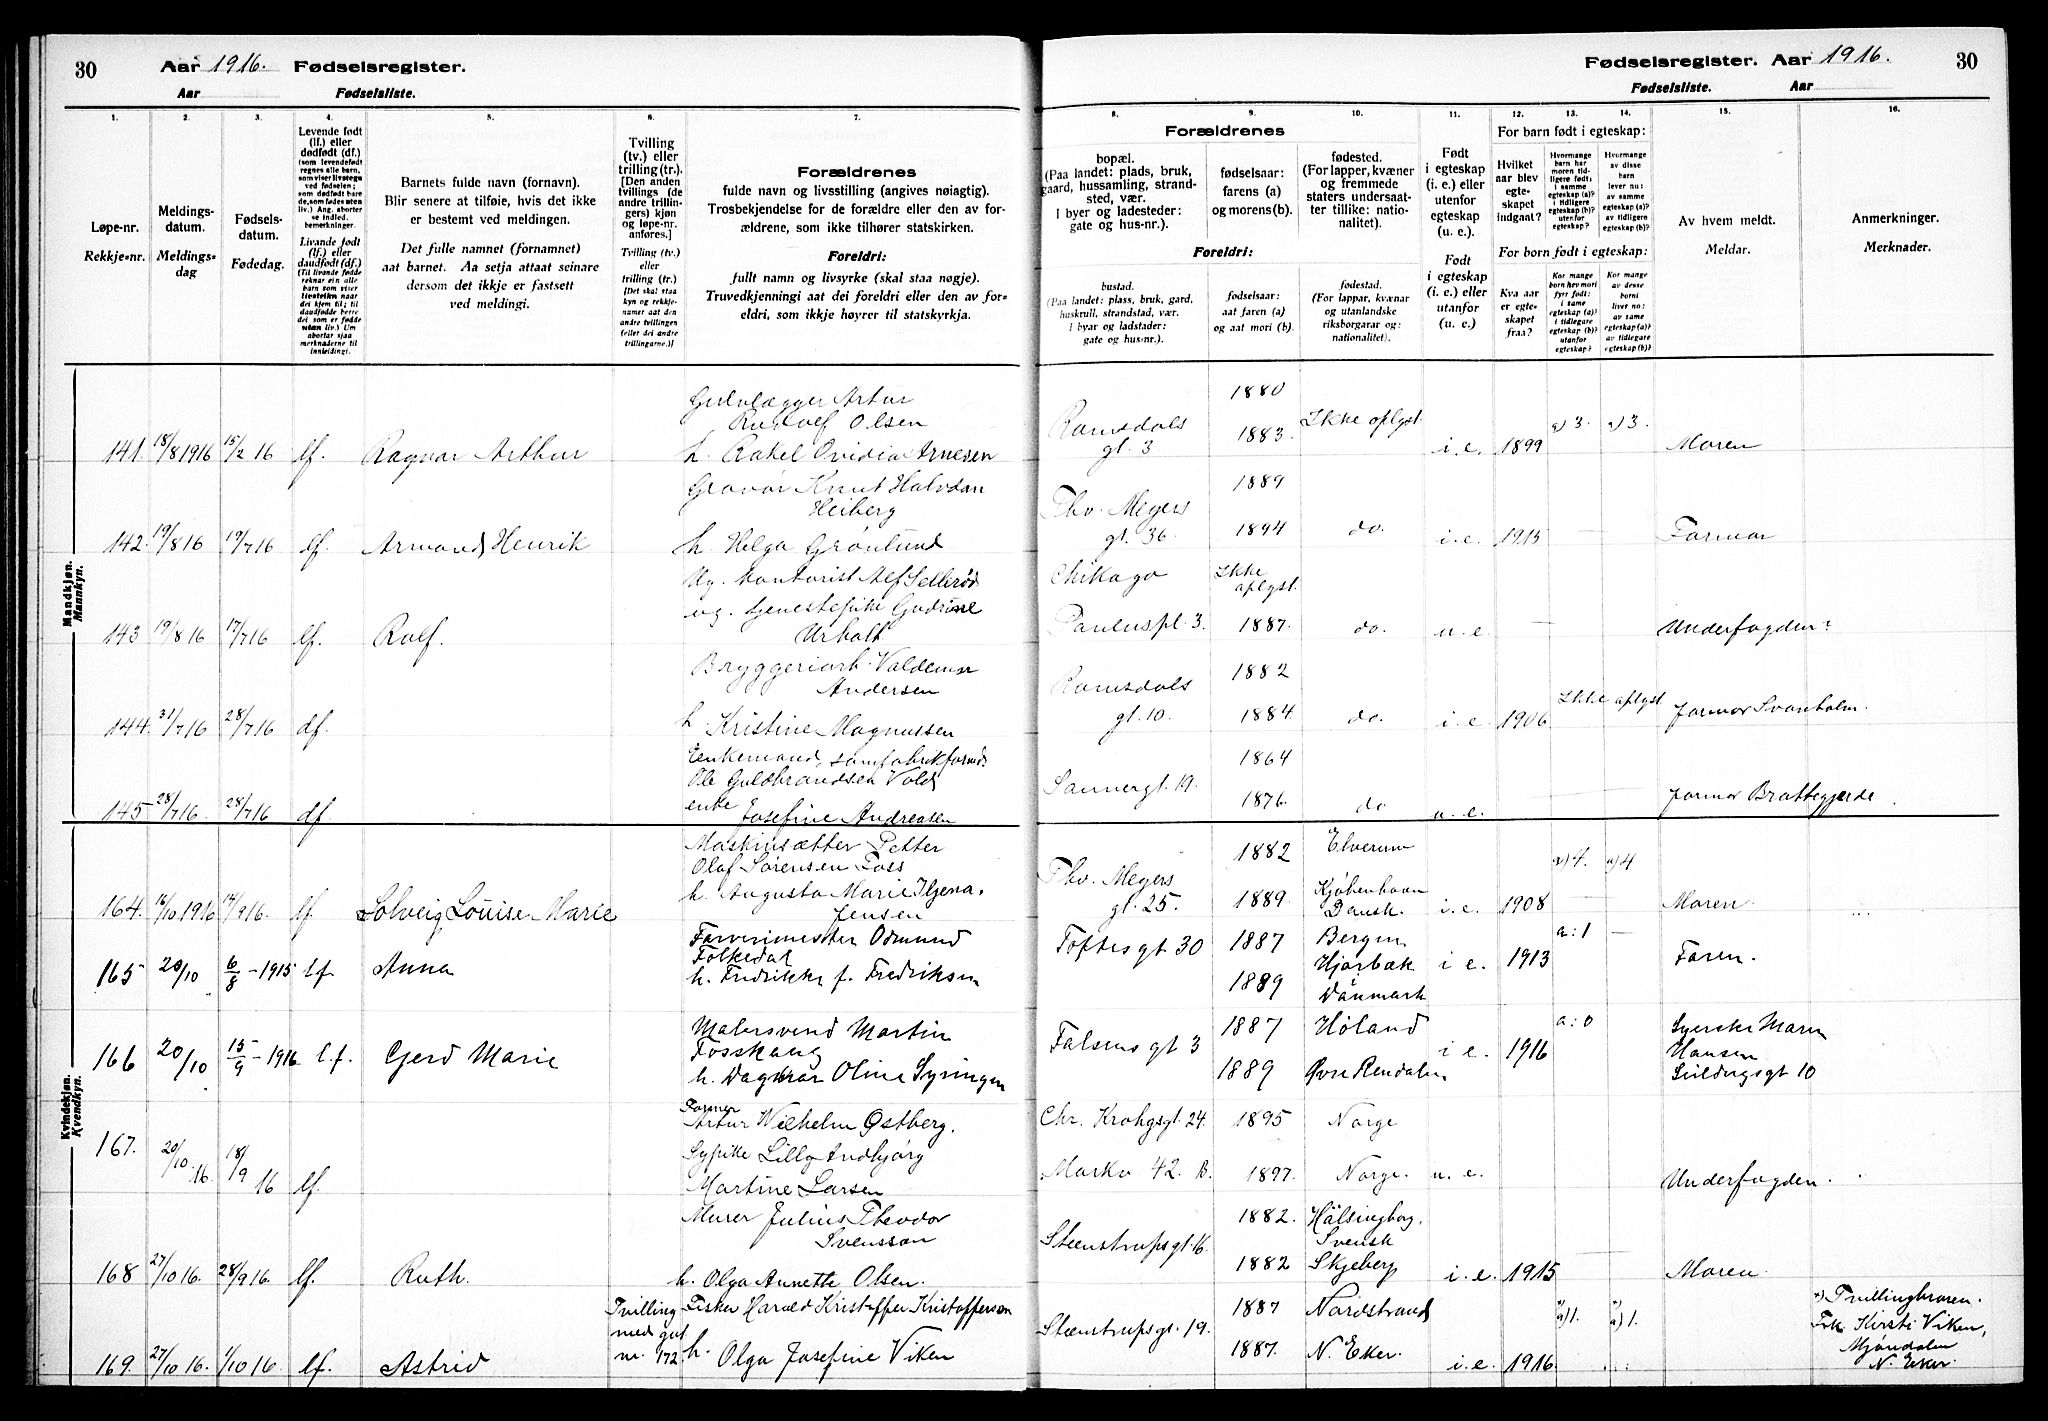 30
Aar 1916. Fødselsregister.
Aar Fødselsliste.
Fødselsregister. Aar 1916.
30
Fødselsliste. Aar
1.
2.
3.
4.
5.
6.
7.
8.
9.
10.
11.
12.
13.
14.
15.
16.
Løpe-nr.
Rekkje-nr.
Meldings-
datum.
Meldings-
dag
Fødsels-
datum.
Fødedag.
Levende født
(lf.) eller
dødfødt (df.)
(som levendefødt
regnes alle barn,
som viser livstegn
ved fødselen;
som dødfødt bare
de, som fødes uten
liv.) Ang. aborter
se indled.
bemerkninger.
Livande født
(lf.) eller
daudfødt (df.)
(Til livande fødde
reknar ein alle
barn som viser
livsteikn naar
dei kjem til; til
daudfødde berre
dei som er fødde
utan liv.) Um
abortar sjaa
merknaderne til
innleidingi.
Barnets fulde navn (fornavn).
Blir senere at tilføie, hvis det ikke
er bestemt ved meldingen.
Det fulle namnet (fornamnet)
aat barnet. Aa setja attaat seinare
dersom det ikkje er fastsett
ved meldingi.
Tvilling
(tv.) eller
trilling (tr.).
[Den anden
tvillings (de
andre trillin-
gers) kjøn
og løpe-nr.
anføres.]
Tvilling (tv.)
eller
trilling (tr.)
[Det skal staa
kyn og rekkje-
numer aat den
andre tvillingen
(eller dei andre
trillingarne.)]
Forældrenes
fulde navn og livsstilling (angives nøiagtig).
Trosbekjendelse for de forældre eller den av for-
ældrene, som ikke tilhører statskirken.
Foreldri:
fullt namn og livsyrke (skal staa nøgje).
Truvedkjenningi aat dei foreldri eller den av for-
eldri, som ikkje høyrer til statskyrkja.
Forældrenes
bopæl.
(Paa landet: plads, bruk,
gaard, hussamling, strand-
sted, vær.
I byer og ladesteder:
gate og hus-nr.).
fødselsaar:
farens (a)
og morens (b).
fødested.
(For lapper, kvæner
og fremmede
staters undersaat-
ter tillike: natio-
nalitet).
Foreldri:
bustad.
(Paa landet: plass, bruk, gard,
huskrull, strandstad, vær.
I byar og ladstader:
gate og hus-nr.).
fødselsaar:
aat faren (a)
og aat mori (b).
fødestad.
(For lappar, kvænar
og utanlandske
riksborgarar og:
nationalitet).
Født
i egteskap
(i. e.) eller
utenfor
egteskap
(u. e.).
Født
i egteskap
(i. e.) eller
utanfor
(u. e.).
For barn født i egteskap:
Hvilket
aar blev
egte-
skapet
indgaat?
Hvormange
barn har
moren tid-
ligere født:
i samme
egteskap (a)?
i tidligere
egteskap (b)?
utenfor
egteskap?
Hvormange
av disse
barn
lever nu:
av samme
egteskap (a)?
av tidligere
egteskap (b)?
For born født i egteskap:
Kva aar
er egte-
skapet
fraa?
Kor mange
born hev mori
fyrr født:
i same
egteskap (a)?
i tidlegare
egteskap (b)?
utanfor
egteskap?
Kor mange
av desse
borni
liver no:
av same
egteskap (a)?
av tidlegare
egteskap (b)?
Av hvem meldt.
Meldar.
Anmerkninger.
Merknader.
Mandkjøn.
Mannkyn.
141. 18/8 1916 15/2 16 lf. Ragnar Arthur
Gulvlægger Artur
Rudolf Olsen
h. Rakel Ovidia Arnesen
Ramsdals
gt. 3
1880
1883.
Ikke oplyst.
i. e. 1899 a) 3. a) 3. Moren
142. 19/8 16 19/7 16 lf. Armand Henrik
Gravør Knut Halvdan
Heiberg
h. Helga Grønlund
Thv. Meyers
gt. 36.
1889
1894
do. i. e. 1915 — Farmor
143 19/8 16 17/7 16 lf. Rolf.
Ug. kontorist Alf Sellerød
ug. tjenestepike Gudrun
Chikago
Ikke
oplyst.
Pauluspl. 3. 1887. do. u. e. — Underfogden:
144. 31/7 16 28/7 16 df.
Bryggeriarb. Valdemar
Andersen
h. Kristine Magnussen
Ramsdals
gt. 10.
1882
1884.
do. i. e. 1906 Ikke oplyst. jormor Svanholm.
145 28/7 16 28/7 16 df.
Enkemand,
Ole Guldbrandsen Vold
enke Josefine Andreasen
Sannergt. 19.
1864
1876.
do u. e. jormor Brattegjerde.
Kvindekjøn.
Kvendkyn.
164. 16/10 1916 14/9 16. lf. Solveig Louise Marie
Maskinsætter Petter
Olaf Sørensen Foss
h. Augusta Marie
Jensen
Thv. Meyers
gt. 25.
1882
1889.
Elverum
Kjøbenhavn
Dansk.
i. e. 1908 a) 4. a) 4 Moren.
165 20/10 6/8 - 1915 lf Anna
Farverimester Odmund
Folkedal
h. Fredrikke f. Fredriksen
Toftesgt 30
1887
1889
Bergen
Hjørbæk
Danmark
i e. 1913 a: 1 — Faren.
166 20/10 15/9 - 1916 l.f. Gerd Marie
Malersvend Martin
Fosskaug
h. Dagmar Oline Syringen
Falsensgt 3
1887
1889
Høland
Øvre Rendalen
i e. 1916 a: 0
Hansen
167. 20/10 16. 18/9 16 lf.
Former
Artur Wilhelm Østberg.
Sypike Lilly Andbjørg
Martine Larsen
Chr. Krohgsgt. 24. 1895 Norge
Markv 42. B. 1897. Norge. u. e. Underfogden.
168 27/10 16. 28/9 16. lf. Ruth.
Murer Julius Theodor
Svensson
h. Olga Annette Olsen.
Steenstrupsgt. 16.
1882.
1882
Hälsingborg.
Svensk
Skjeberg
i. e. 1915 Moren.
169. 27/10 16. 1/10 16. lf. Astrid
Tvilling
med gut
nr. 172.
Fisker Harald Kristoffer Kristoffersen
h. Olga Josefine Viken
Steenstrupsgt. 19.
1887
1887.
Nordstrand
N. Eker.
i. e. 1916 a) 1. a) 1.
Tvillingbroren.
Frk. Kirsti Viken,
Mjøndalen
N. Eker.